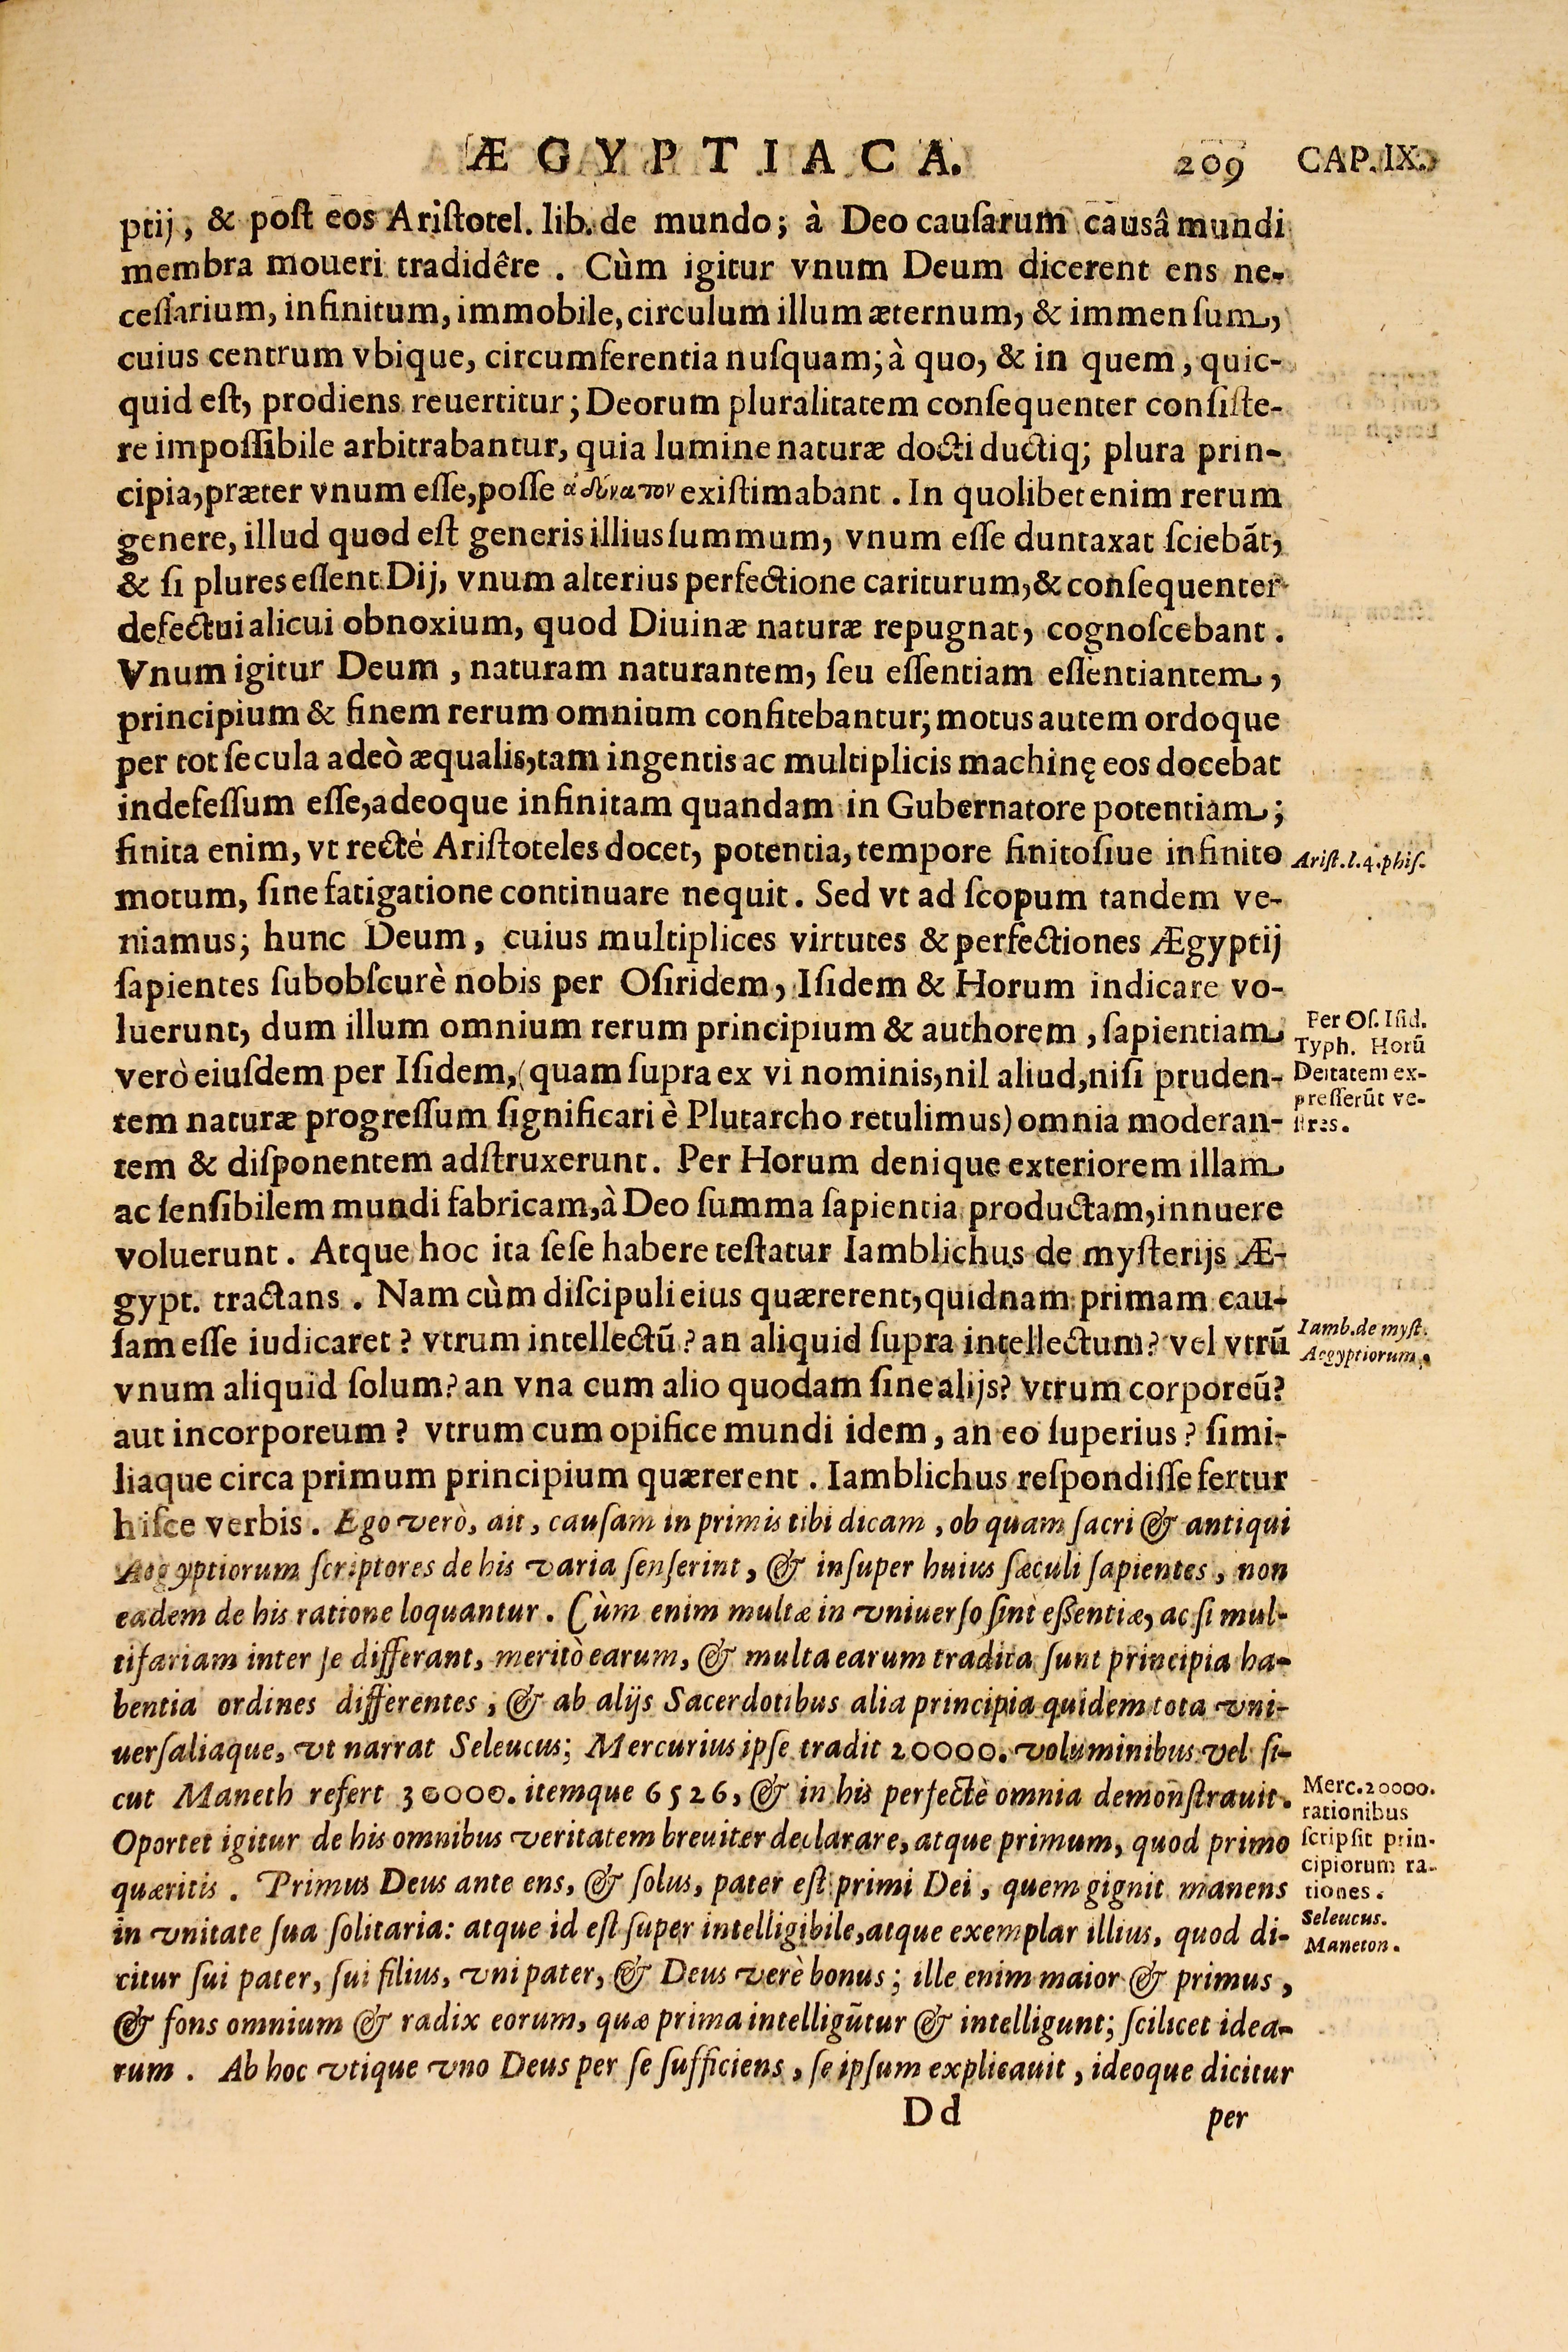 ÆGYPTIACA. 209 CAP. IX.
ptij, & poſt eos Ariſtotel. lib. de mundo; à Deo cauſarum causâ mundi
membra moueri tradidêre. Cùm igitur vnum Deum dicerent ens ne-
ceſſarium, infinitum, immobile, circulum illum æternum, & immenſum,
cuius centrum vbique, circumferentia nuſquam; à quo, & in quem, quic-
quid eſt, prodiens reuertitur; Deorum pluralitatem conſequenter conſiſte-
re impoſſibile arbitrabantur, quia lumine naturæ docti ductiq; plura prin-
cipia, præter vnum eſſe, poſſe ἀδύνατον existimabant. In quolibet enim rerum
genere, illud quod eſt generis illius ſummum, vnum eſſe duntaxat ſciebãt,
& ſi plures eſſent Dij, vnum alterius perfectione cariturum, & conſequenter
defectui alicui obnoxium, quod Diuinæ naturæ repugnat, cognoſcebant.
Vnum igitur Deum, naturam naturantem, ſeu eſſentiam eſſentiantem,
principium & finem rerum omnium confitebantur; motus autem ordoque
per tot ſecula adeò æqualis, tam ingentis ac multiplicis machinę eos docebat
indefeſſum eſſe, adeoque infinitam quandam in Gubernatore potentiam;
finita enim, vt rectè Ariſtoteles docet, potentia, tempore finito ſiue infinito
Ariſt. l. 4. phiſ.
motum, ſine fatigatione continuare nequit. Sed vt ad ſcopum tandem ve-
niamus; hunc Deum, cuius multiplices virtutes & perfectiones Ægyptij
ſapientes ſubobſcurè nobis per Oſiridem, Iſidem & Horum indicare vo-
luerunt, dum illum omnium rerum principium & authorem, ſapientiam
verò eiuſdem per Iſidem, (quam ſupra ex vi nominis, nil aliud, niſi pruden-
tem naturæ progreſſum ſignificari è Plutarcho retulimus) omnia moderan-
Per Oſ. Iſid.
Typh. Horũ
Deitatem ex-
preſſerũt ve-
teres.
tem & diſponentem adſtruxerunt. Per Horum denique exteriorem illam
ac ſenſibilem mundi fabricam, à Deo ſumma ſapientia productam, innuere
voluerunt. Atque hoc ita ſeſe habere teſtatur Iamblichus de myſterijs Æ-
gypt. tractans. Nam cùm diſcipuli eius quærerent, quidnam primam cau-
ſam eſſe iudicaret? vtrum intellectũ? an aliquid ſupra intellectum? vel vtrũ
Iamb. de myſt.
Aegyptiorum.
vnum aliquid ſolum? an vna cum alio quodam ſine alijs? vtrum corporeũ?
aut incorporeum? vtrum cum opifice mundi idem, an eo ſuperius? ſimi-
liaque circa primum principium quærerent. Iamblichus reſpondiſſe fertur
hiſce verbis. Ego verò, ait, cauſam in primis tibi dicam, ob quam ſacri & antiqui
Aegyptiorum ſcriptores de his varia ſenſerint, & inſuper huius ſæculi ſapientes, non
eadem de his ratione loquantur. Cùm enim multæ in vniuerſo ſint eſſentiæ, ac ſi mul-
tifariam inter ſe differant, meritò earum, & multa earum tradita ſunt principia ha-
bentia ordines differentes, & ab alijs Sacerdotibus alia principia quidem tota vni-
uerſaliaque, vt narrat Seleucus; Mercurius ipſe tradit 20000. voluminibus vel ſi-
cut Maneth refert 30000. itemque 6526, & in his perfectè omnia demonſtrauit.
Oportet igitur de his omnibus veritatem breuiter declarare, atque primum, quod primo
quæritis. Primus Deus ante ens, & ſolus, pater eſt primi Dei, quem gignit manens
Merc. 20000.
rationibus
ſcripſit prin-
cipiorum ra-
tiones.
in vnitate ſua ſolitaria: atque id eſt ſuper intelligibile, atque exemplar illius, quod di-
Seleucus.
Maneton.
citur ſui pater, ſui filius, vni pater, & Deus verè bonus; ille enim maior & primus,
& fons omnium & radix eorum, quæ prima intelligũtur & intelligunt; ſcilicet idea-
rum. Ab hoc vtique vno Deus per ſe ſufficiens, ſe ipſum explicauit, ideoque dicitur
Dd per